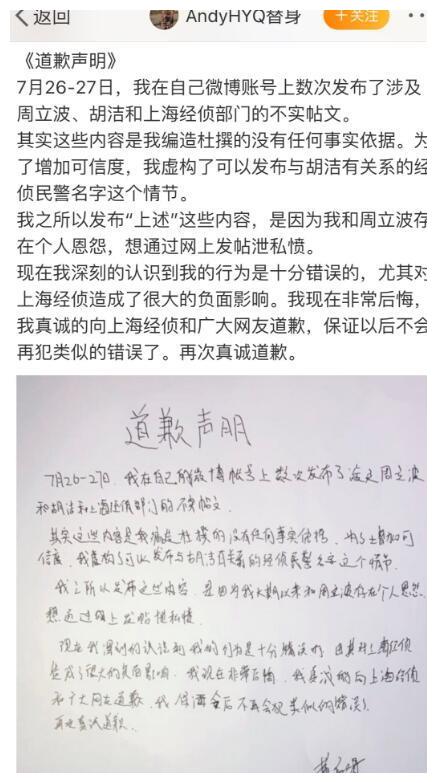 返回
AndyHYQ替身
+关注
《道歉声明》
7月26-27日，我在自己微博账号上数次发布了涉及
周立波、胡洁和上海经侦部门的不实帖文。
其实这些内容是我编造杜撰的没有任何事实依据。为
了增加可信度，我虚构了可以发布与胡洁有关系的经
侦民警名字这个情节。
我之所以发布“上述”这些内容，是因为我和周立波存
在个人恩怨，想通过网上发帖泄私愤。
现在我深刻的认识到我的行为是十分错误的，尤其对
上海经侦造成了很大的负面影响。我现在非常后悔，
我真诚的向上海经侦和广大网友道歉，保证以后不会
再犯类似的错误了。再次真诚道歉。
道歉声明
7月26-27日，我在自己的微博帐号上数次发布了涉及周立波
和胡洁和上海经侦部门的不实帖文。
其实这些内容是我编造杜撰的没有任何事实依据。为了增加可
信度，我虚构了可以发布与胡洁有关系的经侦民警名字这个情节。
我之所以发布这些内容，是因为我长期以来和周立波存在个人恩怨，
想通过网上发帖泄私愤。
现在我深刻的认识到我的行为是十分错误的，尤其对上海经侦
造成了很大的负面影响，我现在非常后悔，我真诚的向上海经侦
和广大网友道歉，我保证今后不再会犯类似的错误！
再次真诚道歉。